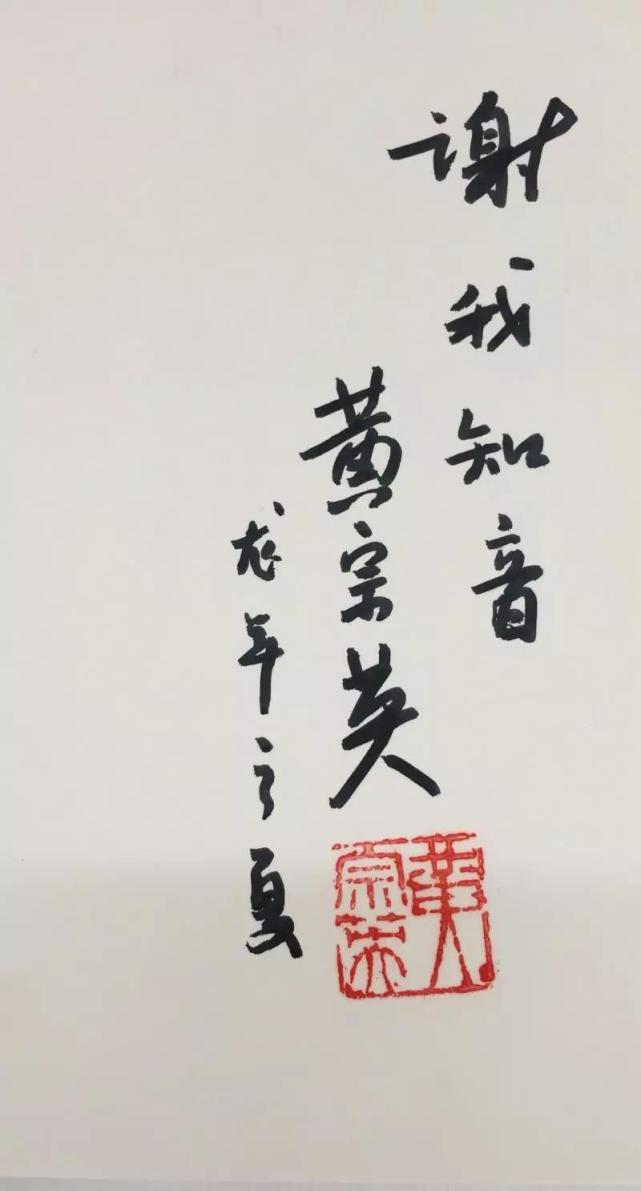 谢我知音
黄宗英
龙年之夏
黄宗英